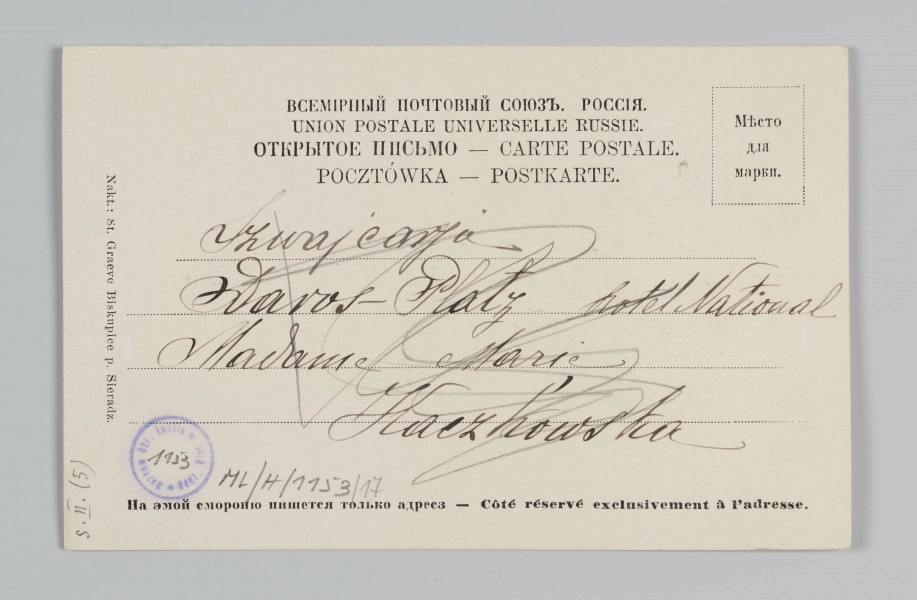 ВСЕМІРНЫЙ ПОЧТОВЫЙ СОЮЗЪ. РОССІЯ.
UNION POSTALE UNIVERSELLE RUSSIE.
ОТКРЫТОЕ ПИСЬМО — CARTE POSTALE.
POCZTÓWKA — POSTKARTE.
Мѣсто
для
марки.
Nakt.: St. Graeve Biskupice p. Sieradz.
Szwajcarja
Davos-Platz hotel National
Madame Marie
Kaczkowska
1153
ML/H/1153/17
S.II.(5)
На эмой смороню пишется только адресз — Côté réservé exclusivement à l'adresse.